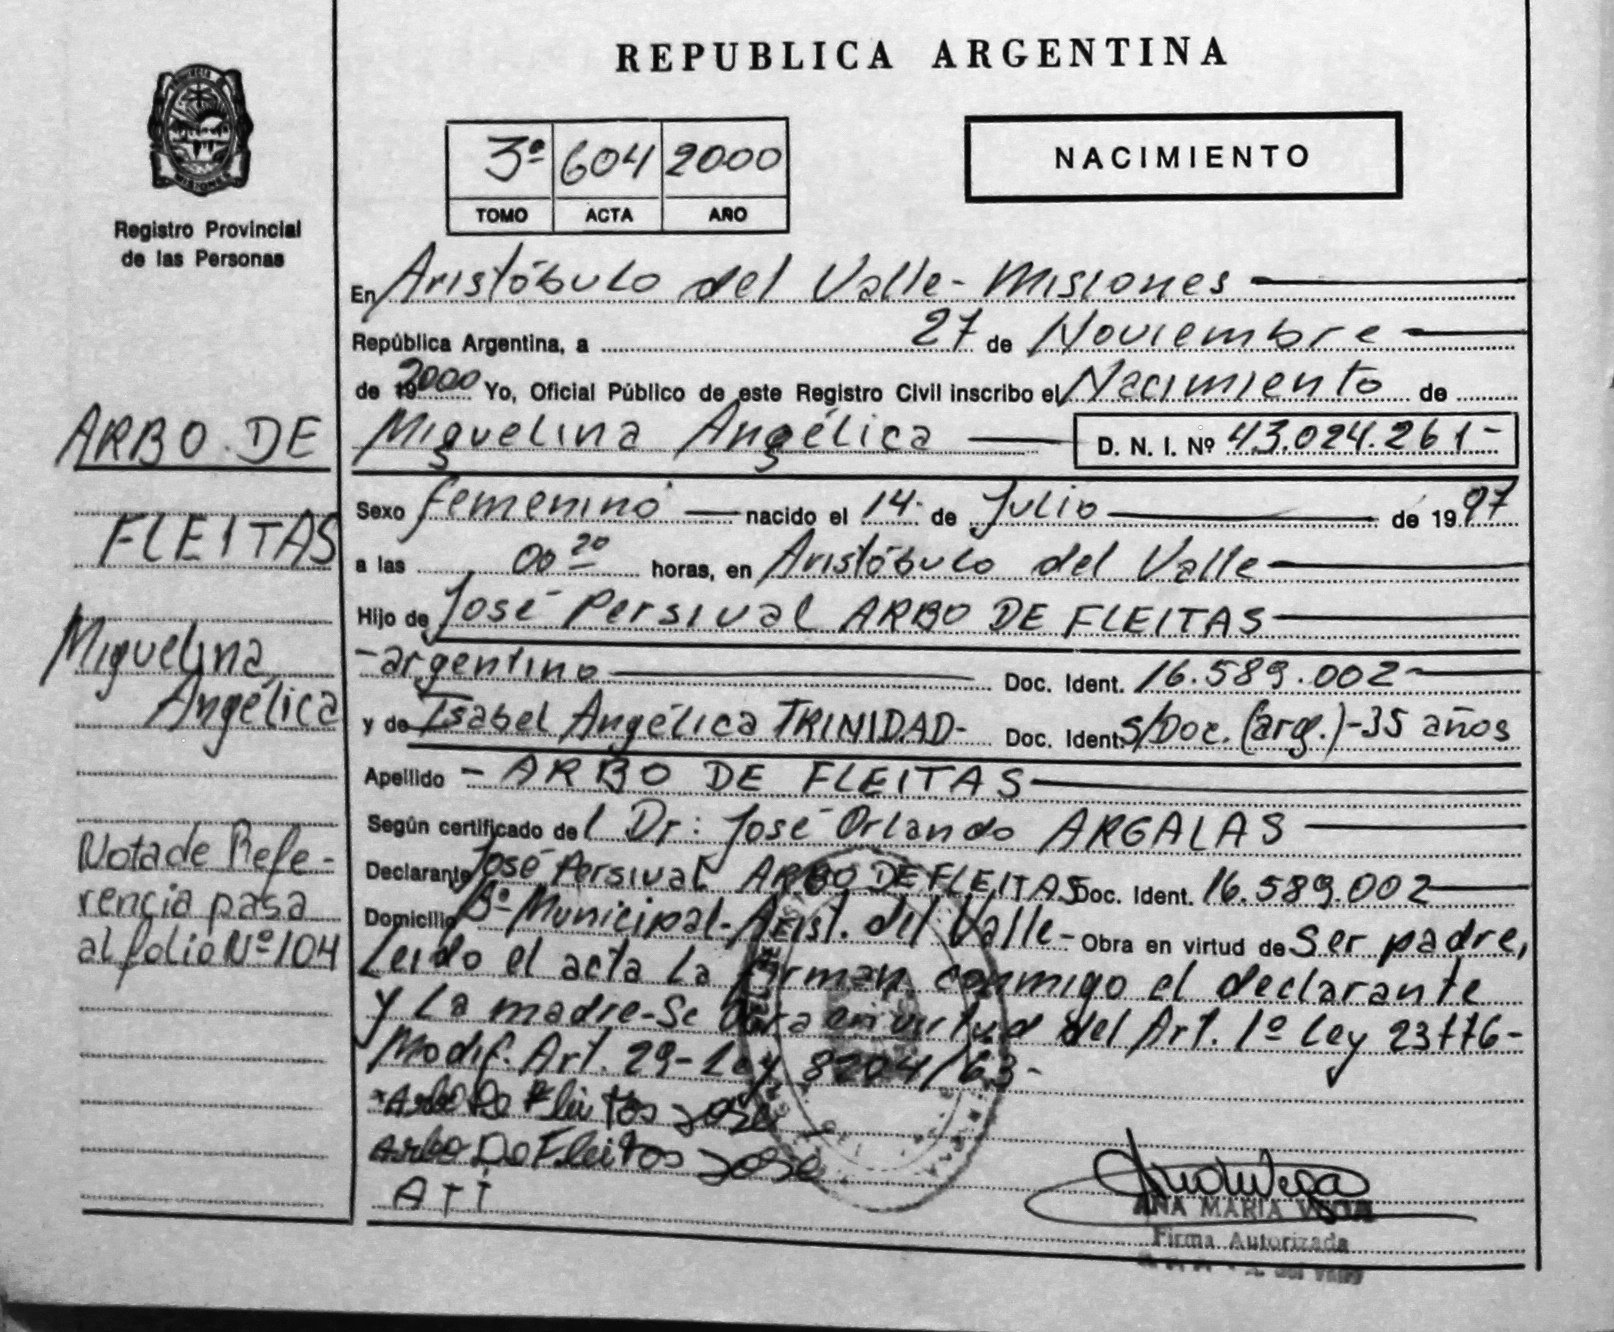 REPUBLICA ARGENTINA
MISIONES
Registro Provincial
de las Personas
3º 604 2000
TOMO ACTA AÑO
NACIMIENTO
ARBO DE
FLEITAS
Miguelina
Angélica
Nota de Refe-
rencia pasa
al folio Nº 104
En Aristóbulo del Valle - Misiones
República Argentina, a 27 de Noviembre
de 192000 Yo, Oficial Público de este Registro Civil inscribo el Nacimiento de
Miguelina Angélica D. N. I. Nº 43.024.261-
Sexo femenino nacido el 14 de Julio de 1997
a las 00 20 horas, en Aristóbulo del Valle
Hijo de José Persival ARBO DE FLEITAS
-argentino Doc. Ident. 16.589.002-
y de Isabel Angélica TRINIDAD- Doc. Ident. S/Doc. (arg.)-35 años
Apellido - ARBO DE FLEITAS
Según certificado del Dr: José Orlando ARGALAS
Declarante José Persival ARBO DE FLEITAS Doc. Ident. 16.589.002
Domicilio Bº Municipal - Arist. del Valle - Obra en virtud de ser padre,
Leido el acta la firman conmigo el declarante
y la madre-Se obra en virtud del Art. 1º Ley 23776-
Modif. Art. 29-Ley 8204/63-
Arbo De Fleitas José
Arbo De Fleitas José
A T I
ANA MARIA
Firma Autorizada
del Valle